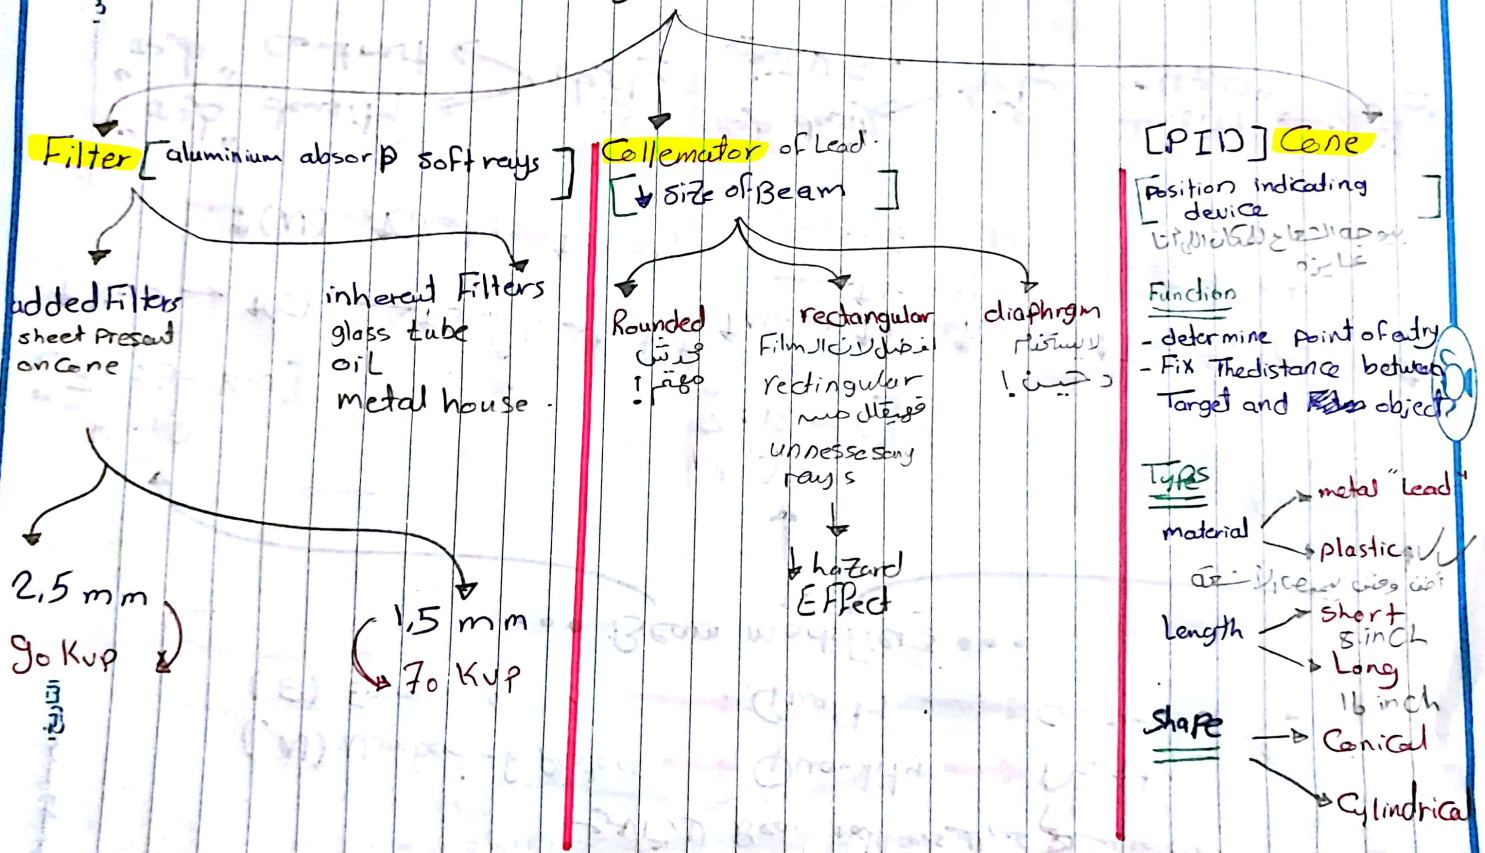 Filter [aluminium absorp soft rays]
added Filters
sheet Present
on Cone
inherent Filters
glass tube
oil
metal house.
2,5 mm
90 Kvp
1,5 mm
70 Kvp
Collemator of Lead.
[↓ size of Beam]
Rounded
محدش
مهتم!
rectangular
افضل لان الـ Film
rectingular
فهيقلل
unnessesary
rays
↓ hazard
Effect
diaphrgm
لا يستخدم
دحين!
[PID] Cone
[Position indicating
device]
يوجه الشعاع للمكان اللي أنا
عايزه
Function
- determine point of entry
- Fix The distance between
Target and object
Types
material
metal "Lead"
plastic ✓✓
Length
short
8 inch
Long
16 inch
Shape
Conical
Cylindrical